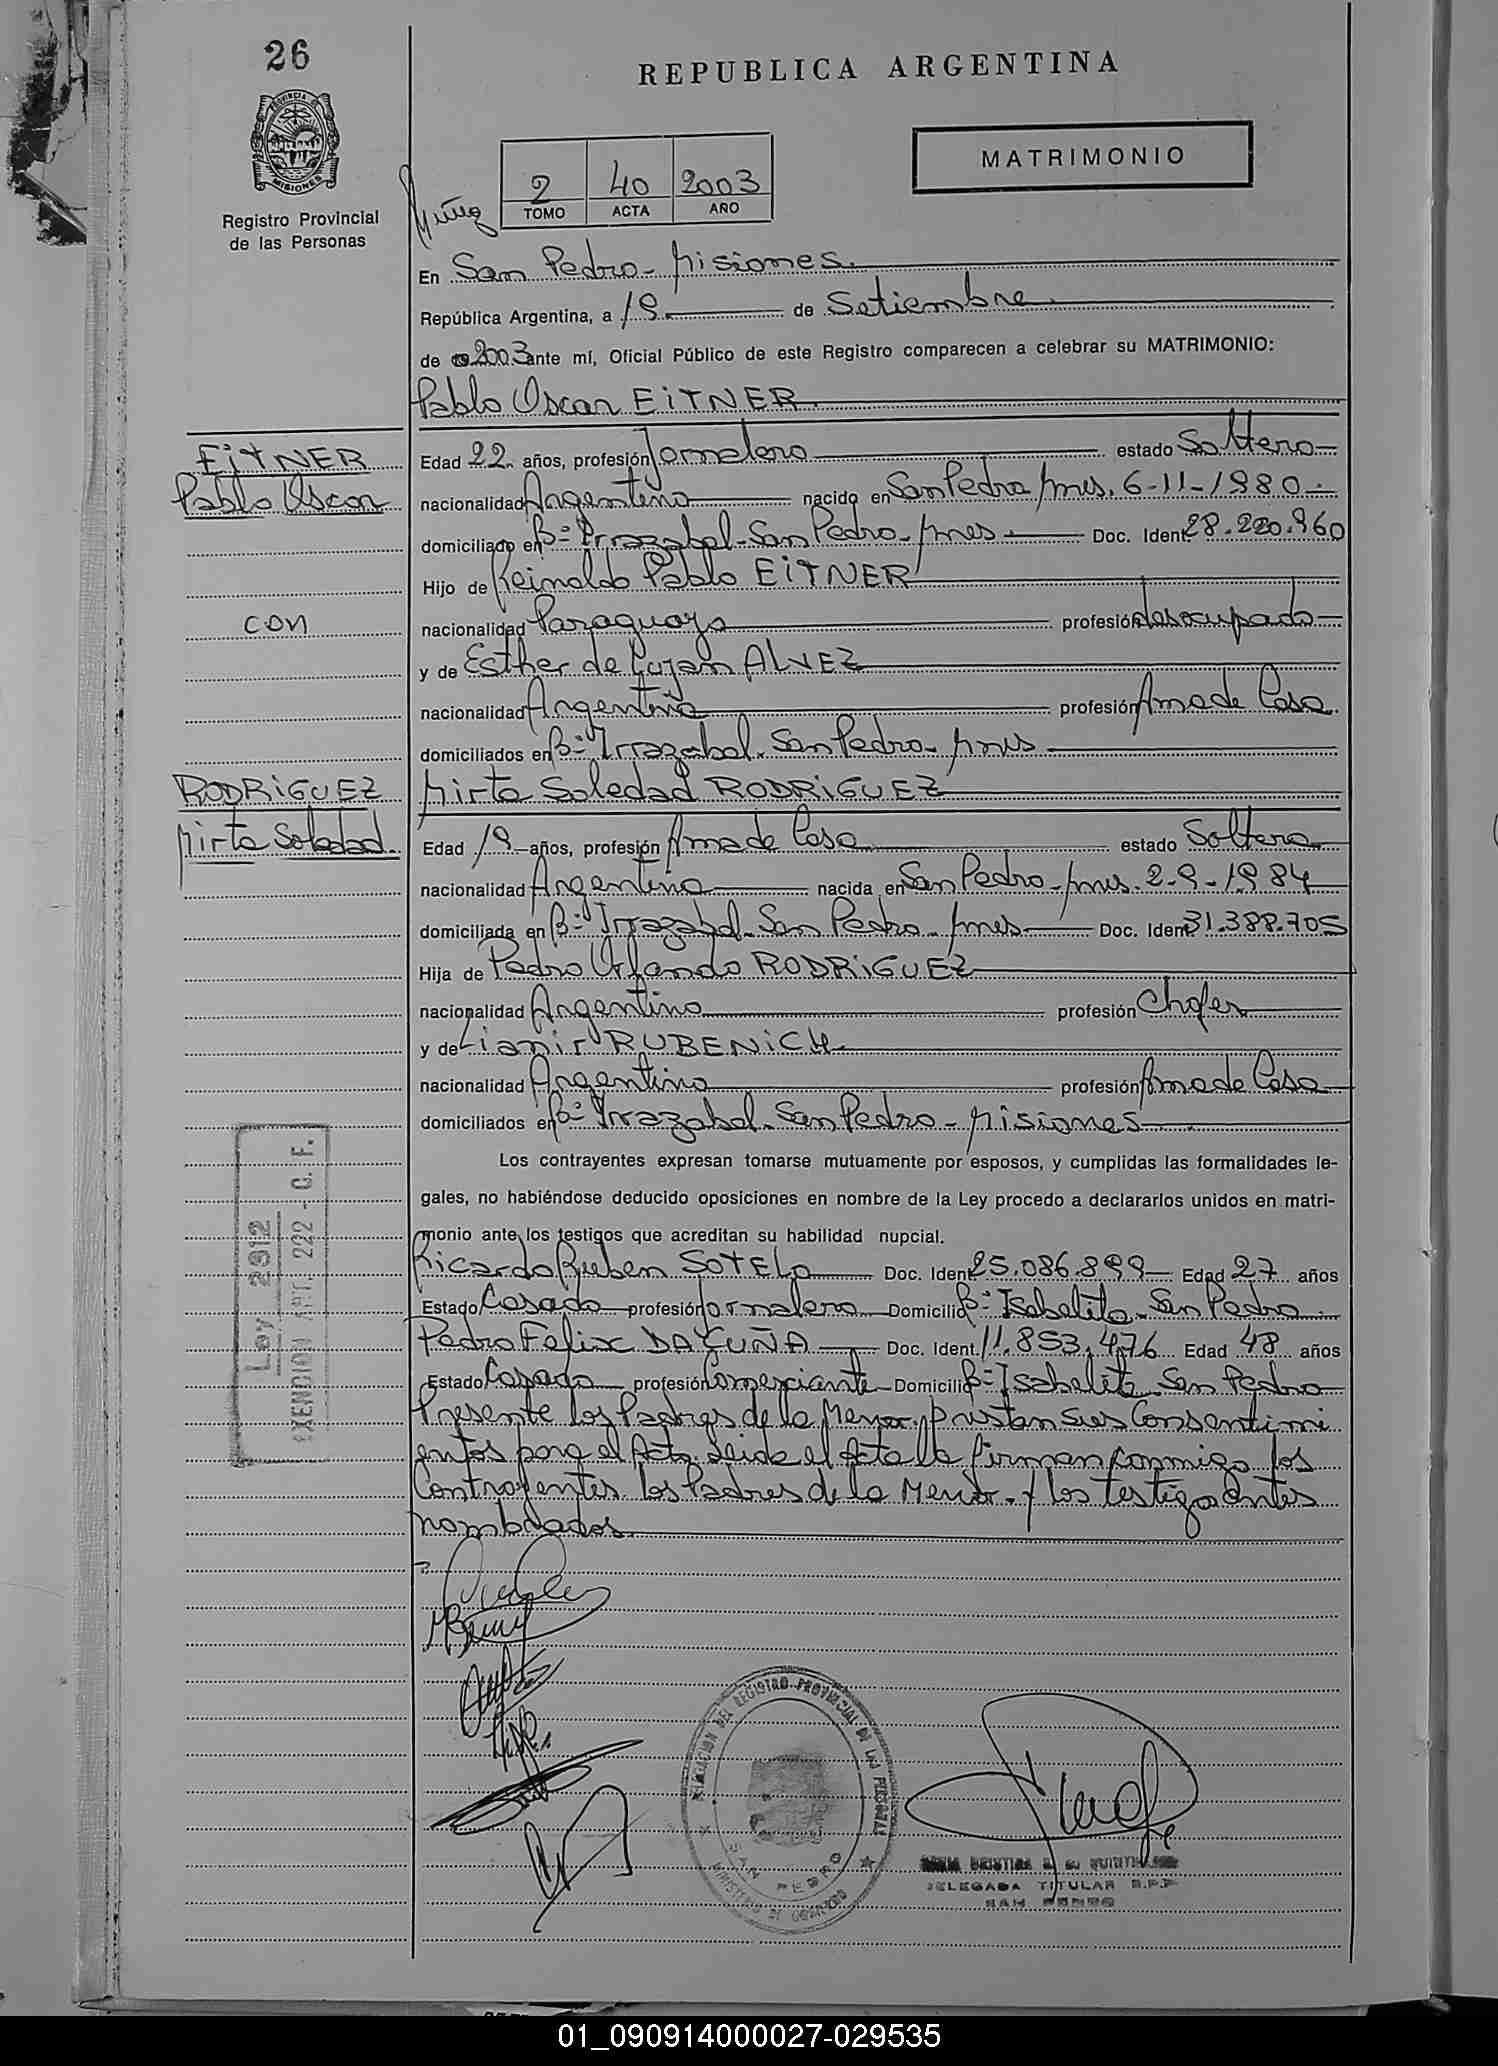 26
REPUBLICA ARGENTINA
PROVINCIA DE
MISIONES
Registro Provincial
de las Personas
2 40 2003
TOMO ACTA AÑO
MATRIMONIO
En San Pedro - Misiones.
República Argentina, a 19 de Setiembre
de 2003 ante mí, Oficial Público de este Registro comparecen a celebrar su MATRIMONIO:
Pablo Oscar EITNER
EITNER
Pablo Oscar
con
RODRIGUEZ
Mirta Soledad
Edad 22 años, profesión Jornalero estado Soltero
nacionalidad Argentino nacido en San Pedro Mnes. 6-11-1980
domiciliado en B= Irrazabal - San Pedro - Mnes Doc. Ident 28.220.960
Hijo de Reinaldo Pablo EITNER
nacionalidad Paraguayo profesión desocupado
y de Esther de Lujan ALVEZ
nacionalidad Argentina profesión Ama de Casa
domiciliados en B= Irrazabal - San Pedro - Mnes
Mirta Soledad RODRIGUEZ
Edad 19 años, profesión Ama de Casa estado Soltera
nacionalidad Argentina nacida en San Pedro - Mnes. 2-9-1984
domiciliada en B= Irrazabal - San Pedro - Mnes Doc. Ident 31.388.705
Hija de Pedro Orlando RODRIGUEZ
nacionalidad Argentino profesión Chofer
y de Lianir RUBENICH
nacionalidad Argentina profesión Ama de Casa
domiciliados en B= Irrazabal - San Pedro - Misiones
Los contrayentes expresan tomarse mutuamente por esposos, y cumplidas las formalidades le-
gales, no habiéndose deducido oposiciones en nombre de la Ley procedo a declararlos unidos en matri-
monio ante los testigos que acreditan su habilidad nupcial.
Ricardo Ruben SOTELO Doc. Ident 25.086.899 Edad 27 años
Estado Casado profesión Jornalero Domicilio B= Isabelita - San Pedro
Pedro Felix DA CUÑA Doc. Ident. 11.853.476 Edad 48 años
Estado Casado profesión Comerciante Domicilio B= Isabelita - San Pedro
Presente los Padres de la Menor, pristan sus Consentimi
entos para el Acto. Leida el Acta la firman conmigo los
Contrayentes los Padres de la Menor - y los testigo antes
nombrados
Ley 2912
EXENCION ART. 222 - C. F.
DELEGACION DEL REGISTRO PROVINCIAL DE LAS PERSONAS
SAN PEDRO
MINISTERIO DE GOBIERNO
DELEGADA TITULAR R.P.P
SAN PEDRO
01_090914000027-029535